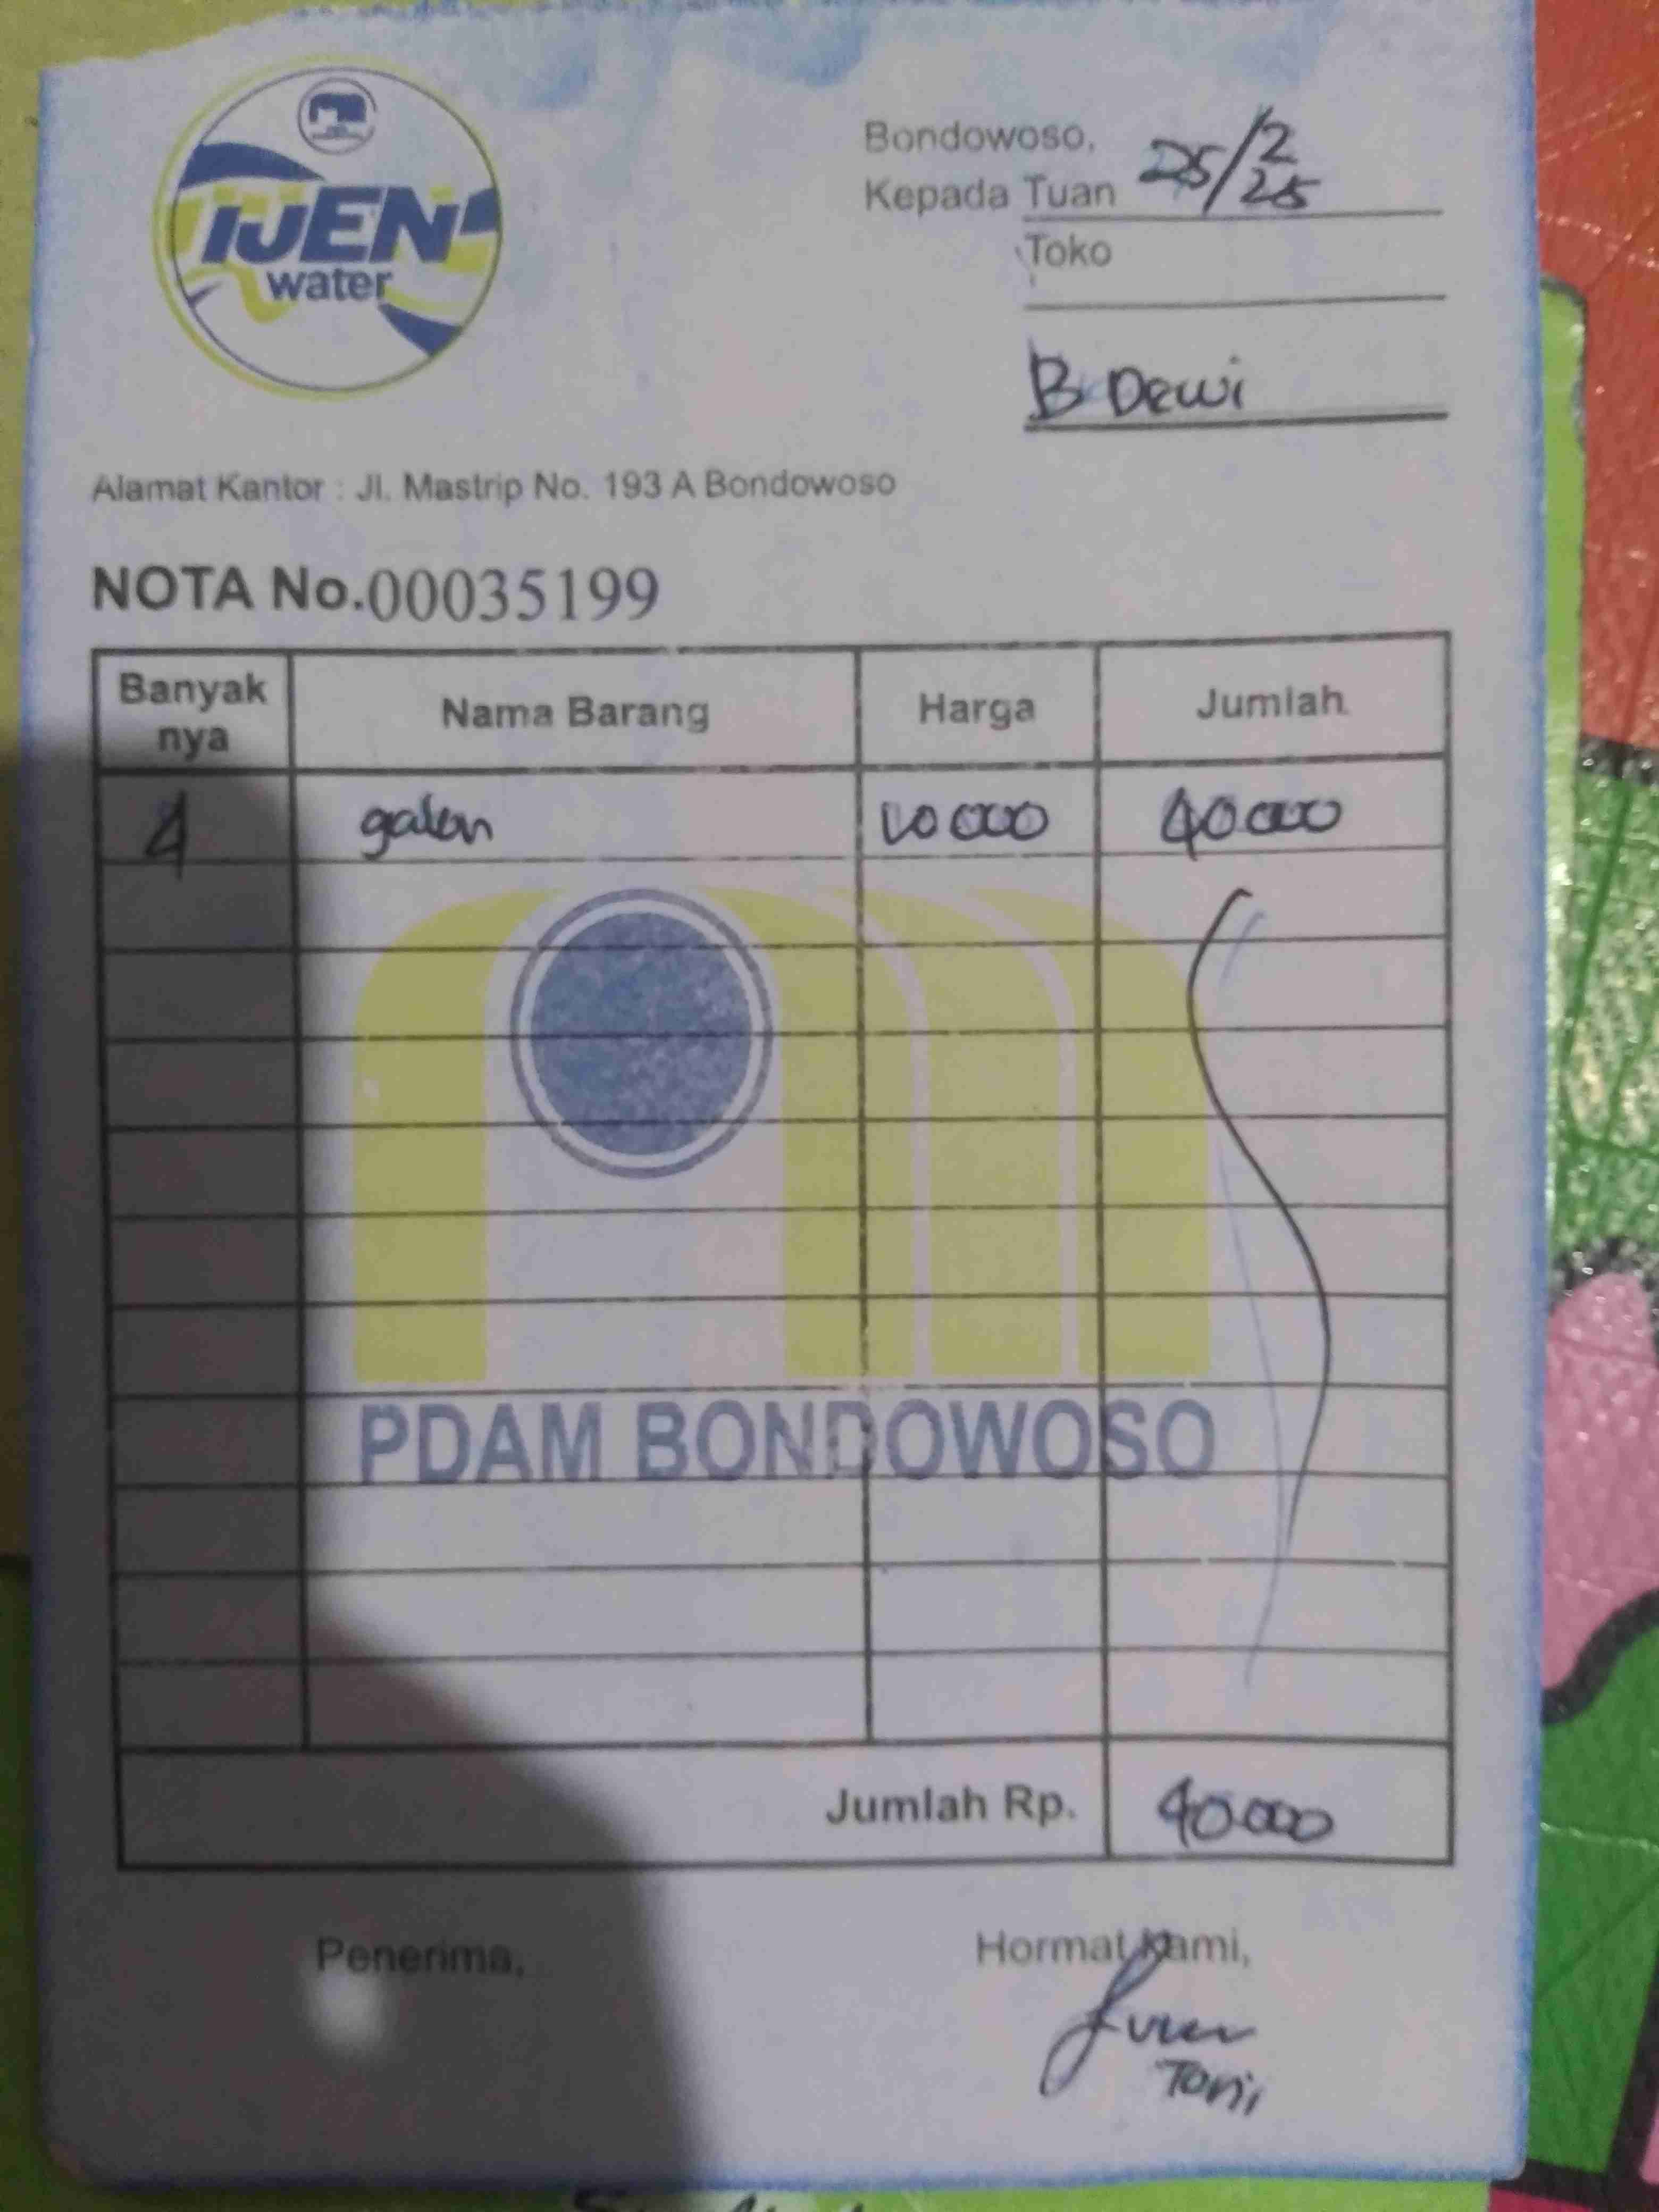 IJEN
water
Bondowoso, 25/2 25
Kepada Tuan
Toko
B Dewi
Alamat Kantor : Jl. Mastrip No. 193 A Bondowoso
NOTA No.00035199
Banyak nya Nama Barang Harga Jumlah
4 galon 10 000 40 000
PDAM BONDOWOSO
Jumlah Rp. 40.000
Penerima, Hormat Kami,